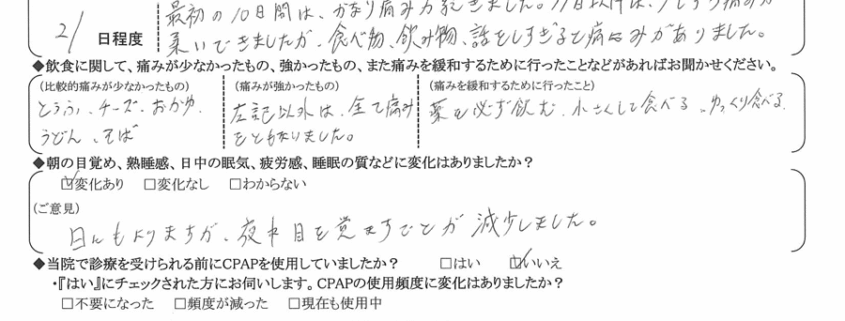 最初の10日間は、かなり痛みが続きました。11日以降は、少しずつ痛みが
21 日程度 柔いできましたが、食べ物、飲み物、話をしすぎると痛みがありました。
◆飲食に関して、痛みが少なかったもの、強かったもの、また痛みを緩和するために行ったことなどがあればお聞かせください。
(比較的痛みが少なかったもの) (痛みが強かったもの) (痛みを緩和するために行ったこと)
とうふ、チーズ、おかゆ、 左記以外は、全て痛み 薬を必ず飲む、小さくして食べる、ゆっくり食べる、
うどん、そば をともないました。
◆朝の目覚め、熟睡感、日中の眠気、疲労感、睡眠の質などに変化はありましたか?
☑変化あり □変化なし □わからない
(ご意見)
日にもよりますが、夜中目を覚ますことが減少しました。
◆当院で診療を受けられる前にCPAPを使用していましたか? □はい ☑いいえ
・『はい』にチェックされた方にお伺いします。CPAPの使用頻度に変化はありましたか?
□不要になった □頻度が減った □現在も使用中